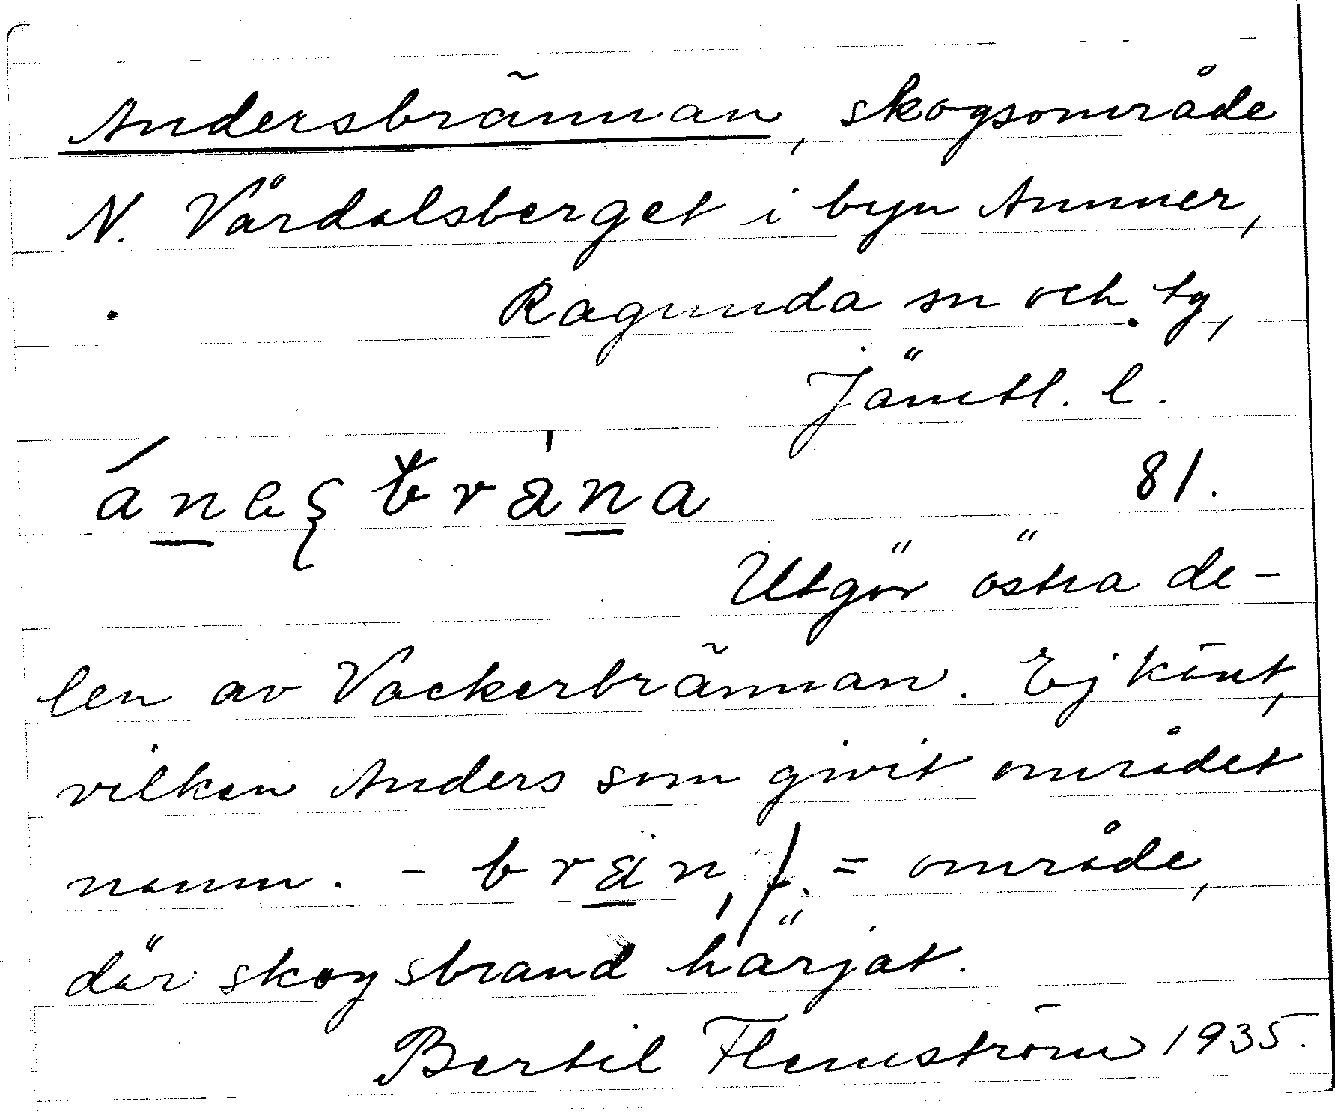 Andersbrännan, skogsområde
N. Vårdalsberget i byn Ammer,
Ragunda sn och tg,
Jämtl. l.
81.
Utgör östra de-
len av Vackerbrännan. Ej känt,
vilken Anders som givit området
namn. - brän, f. = område,
där skogsbrand härjat.
Bertil Flemström 1935.